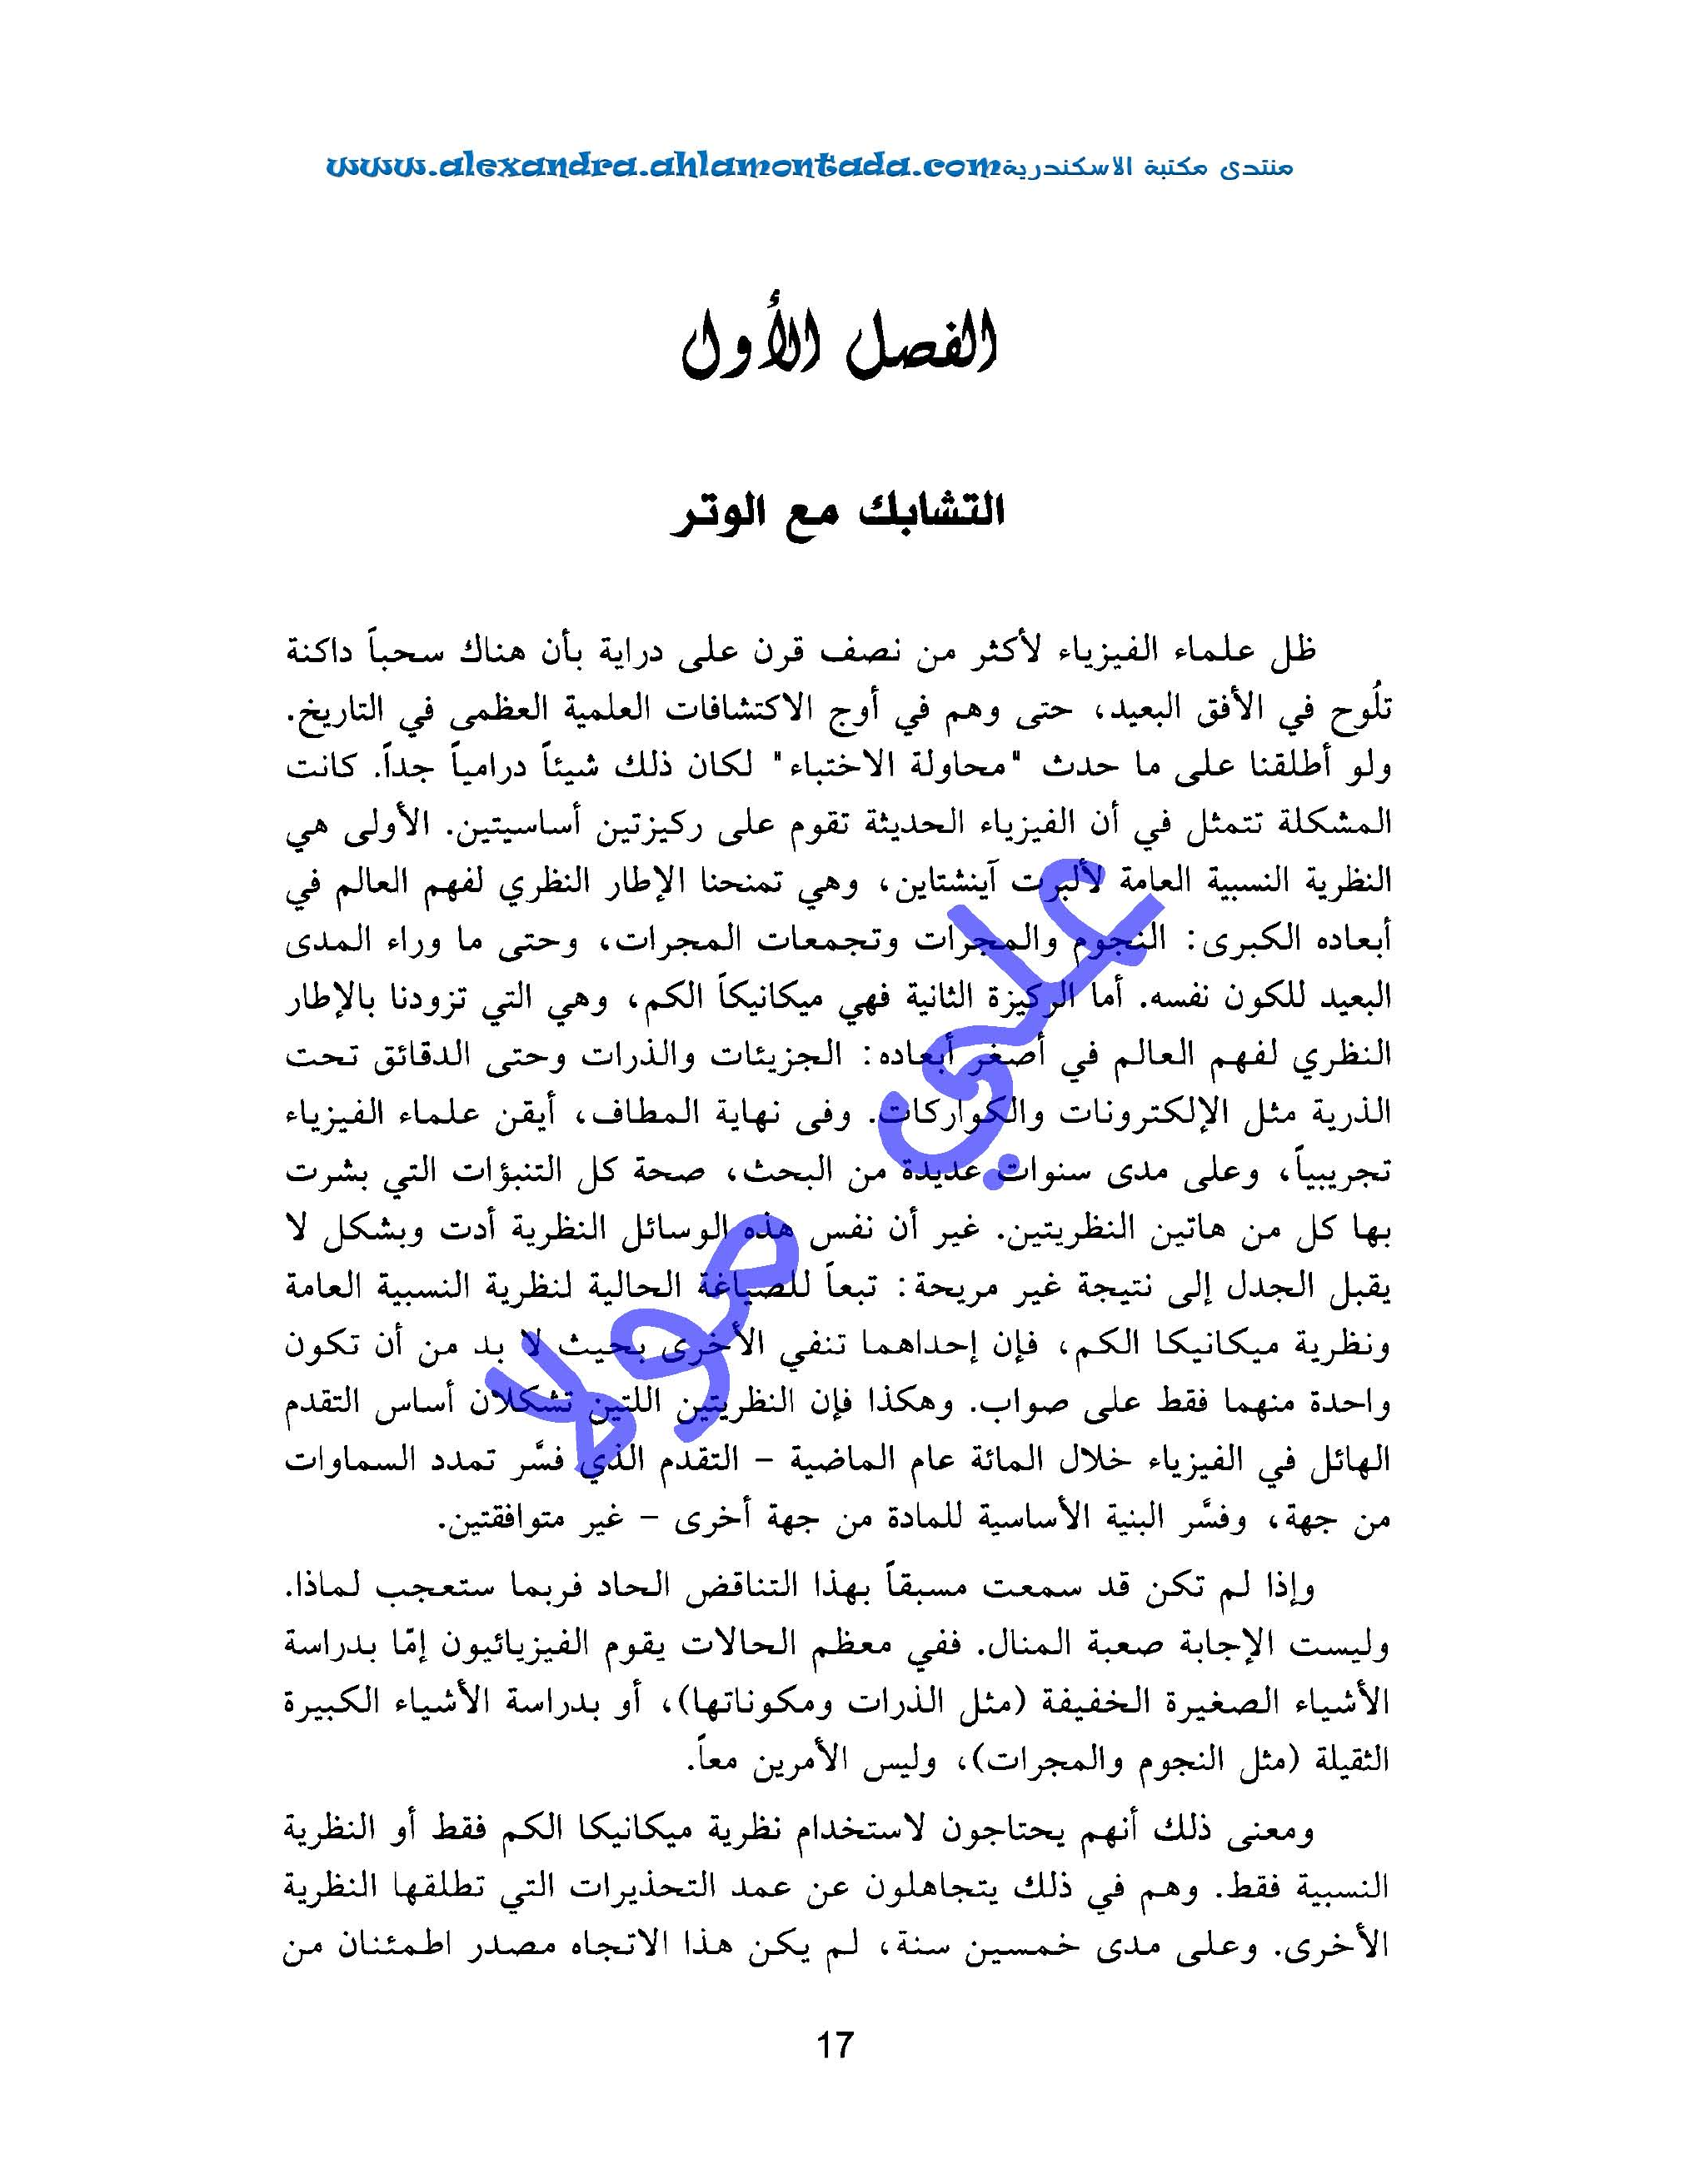 منتدى مكتبة الاسكندرية www.alexandra.ahlamontada.com
الفصل الأول
التشابك مع الوتر
ظل علماء الفيزياء لأكثر من نصف قرن على دراية بأن هناك سحباً داكنة
تلُوح في الأفق البعيد، حتى وهم في أوج الاكتشافات العلمية العظمى في التاريخ.
ولو أطلقنا على ما حدث "محاولة الاختباء" لكان ذلك شيئاً درامياً جداً. كانت
المشكلة تتمثل في أن الفيزياء الحديثة تقوم على ركيزتين أساسيتين. الأولى هي
النظرية النسبية العامة لألبرت آينشتاين، وهي تمنحنا الإطار النظري لفهم العالم في
أبعاده الكبرى: النجوم والمجرات وتجمعات المجرات، وحتى ما وراء المدى
البعيد للكون نفسه. أما الركيزة الثانية فهي ميكانيكاً الكم، وهي التي تزودنا بالإطار
النظري لفهم العالم في أصغر أبعاده: الجزيئات والذرات وحتى الدقائق تحت
الذرية مثل الإلكترونات والكواركات. وفى نهاية المطاف، أيقن علماء الفيزياء
تجريبياً، وعلى مدى سنوات عديدة من البحث، صحة كل التنبؤات التي بشرت
بها كل من هاتين النظريتين. غير أن نفس هذه الوسائل النظرية أدت وبشكل لا
يقبل الجدل إلى نتيجة غير مريحة: تبعاً للصياغة الحالية لنظرية النسبية العامة
ونظرية ميكانيكا الكم، فإن إحداهما تنفي الأخرى بحيث لا بد من أن تكون
واحدة منهما فقط على صواب. وهكذا فإن النظريتين اللتين تشكلان أساس التقدم
الهائل في الفيزياء خلال المائة عام الماضية – التقدم الذي فسَّر تمدد السماوات
من جهة، وفسَّر البنية الأساسية للمادة من جهة أخرى – غير متوافقتين.
وإذا لم تكن قد سمعت مسبقاً بهذا التناقض الحاد فربما ستعجب لماذا.
وليست الإجابة صعبة المنال. ففي معظم الحالات يقوم الفيزيائيون إمّا بدراسة
الأشياء الصغيرة الخفيفة (مثل الذرات ومكوناتها)، أو بدراسة الأشياء الكبيرة
الثقيلة (مثل النجوم والمجرات)، وليس الأمرين معاً.
ومعنى ذلك أنهم يحتاجون لاستخدام نظرية ميكانيكا الكم فقط أو النظرية
النسبية فقط. وهم في ذلك يتجاهلون عن عمد التحذيرات التي تطلقها النظرية
الأخرى. وعلى مدى خمسين سنة، لم يكن هذا الاتجاه مصدر اطمئنان من
17
علي مولا